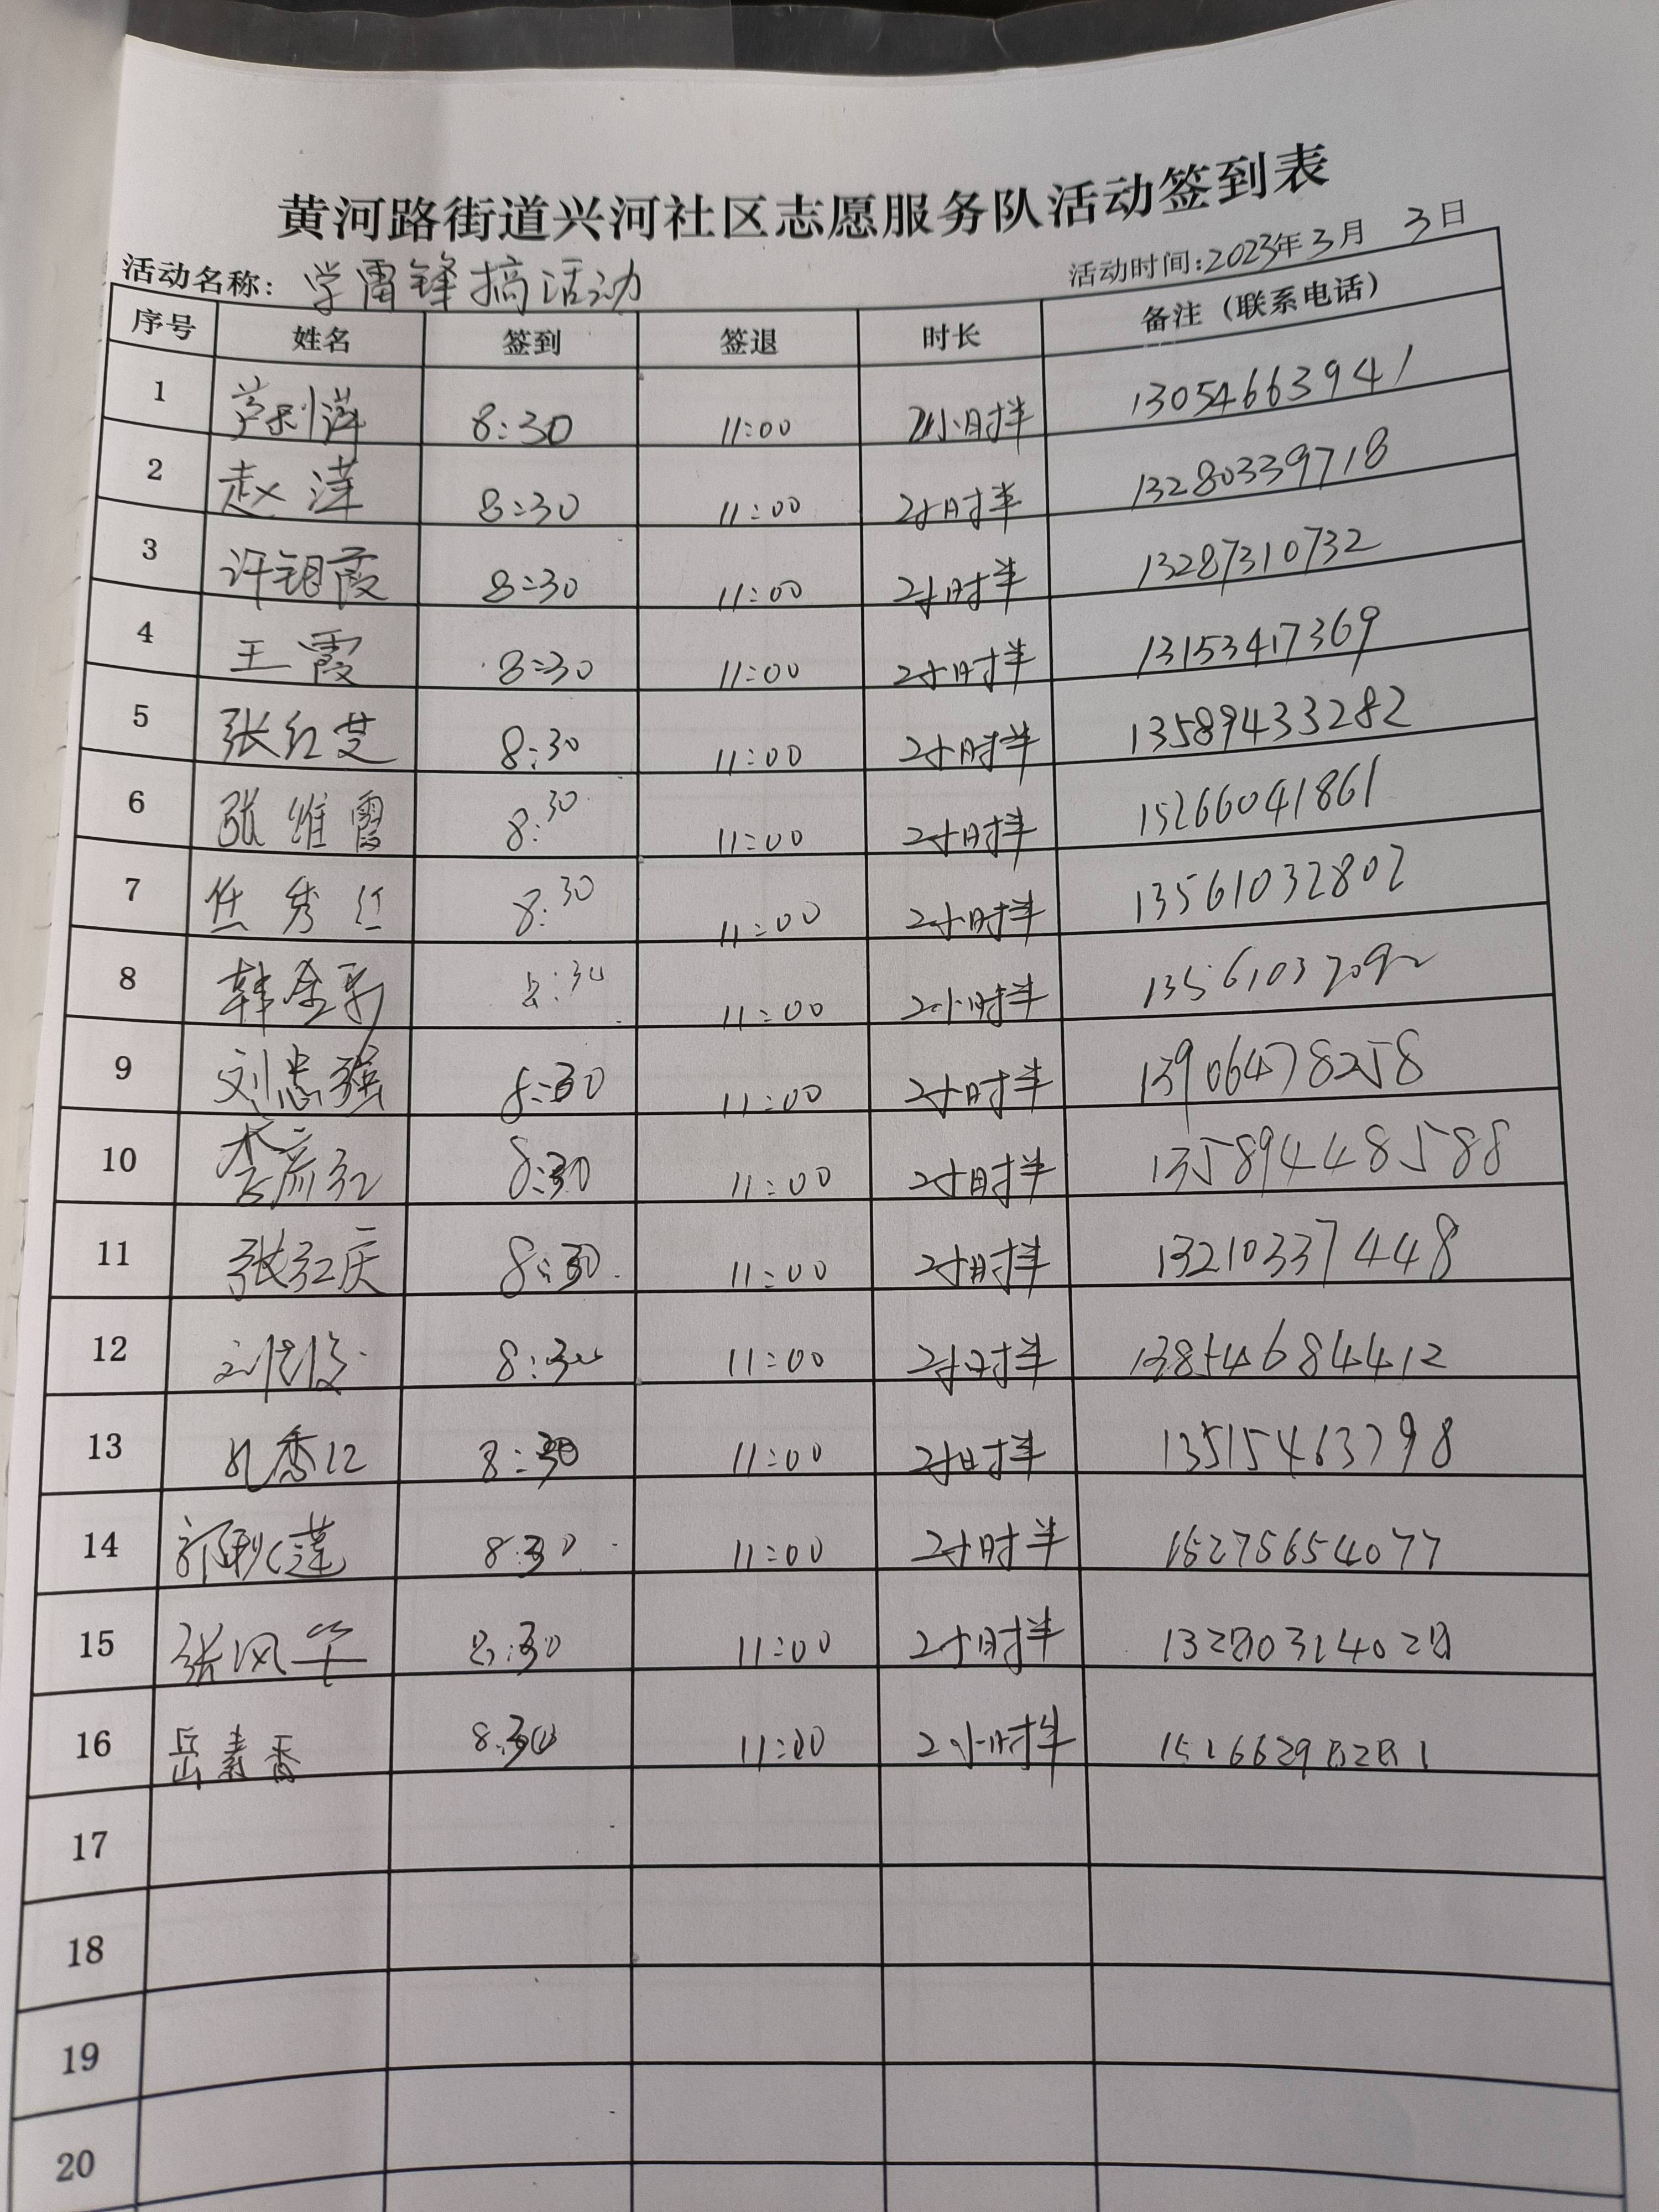 黄河路街道兴河社区志愿服务队活动签到表
活动名称：学雷锋搞活动 活动时间：2023年3月 3日
序号 姓名 签到 签退 时长 备注（联系电话）
1 8:30 11:00 2小时半 13054663941
2 赵洋 8:30 11:00 2小时半 13280339718
3 许钼霞 8:30 11:00 2小时半 13287310732
4 王霞 8:30 11:00 2小时半 13153417369
5 张红芝 8:30 11:00 2小时半 13589433282
6 张维霞 8:30 11:00 2小时半 15266041861
7 任秀红 8:30 11:00 2小时半 13561032802
8 8:30 11:00 2小时半
9 刘忠强 8:30 11:00 2小时半 13906478258
10 李彦红 8:30 11:00 2小时半 13589448588
11 张红庆 8:30 11:00 2小时半 13210337448
12 8:30 11:00 2小时半 13854684412
13 孔香江 8:30 11:00 2小时半 13515463798
14 郭秋莲 8:30 11:00 2小时半 15275654077
15 张风华 8:30 11:00 2小时半 13280314028
16 岳素香 8:30 11:00 2小时半
17
18
19
20